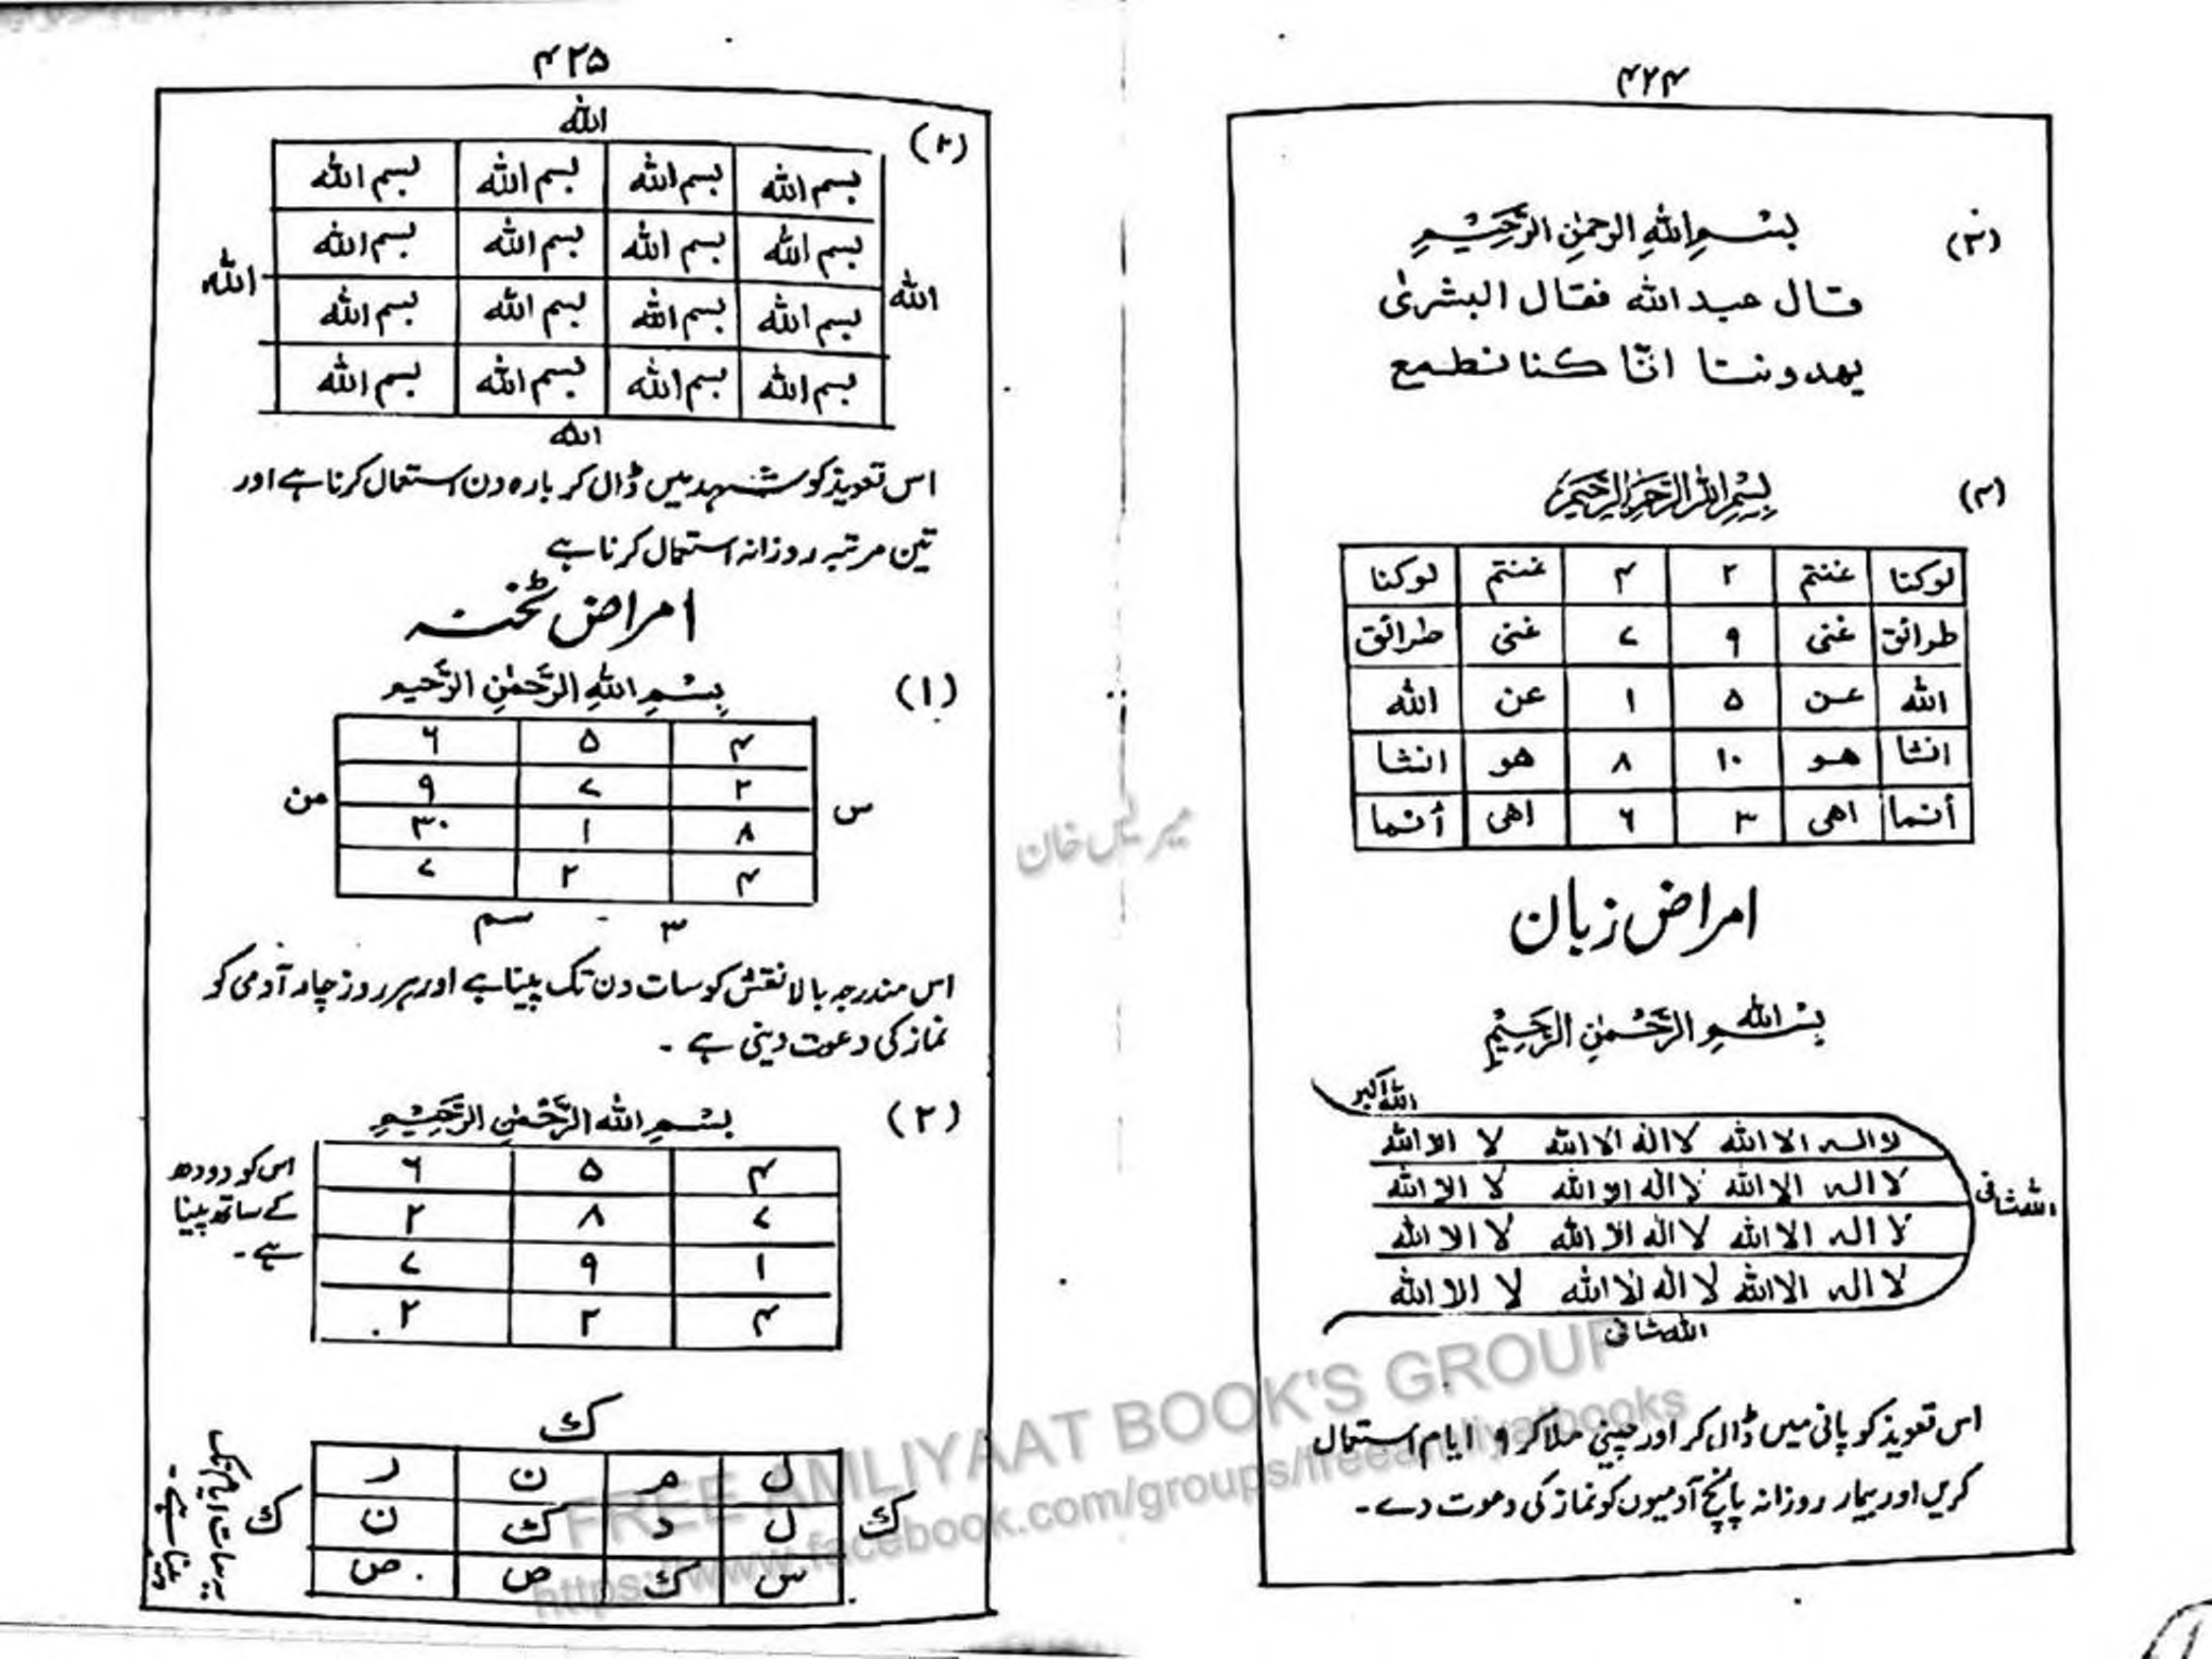 ۴۲۴
(۳)
بِسْمِ اللهِ الرحمٰنِ الرَّحِيْمِ
قال عبد الله فقال البشرىٰ
يهدوننا انّا كنا نطمع
(۴)
بِسْمِ اللهِ الرَّحْمٰنِ الرَّحِيْمِ
لوكنا غنتم ۲ ۴ غنتم لوكنا
طرائق غنى ۹ ۷ غنى طرائق
الله عن ۵ ۱ عن الله
انشا هو ۱۰ ۸ هو انشا
أنما اهى ۳ ۶ اهى أنما
امراض زبان
بِسْمِ اللهِ الرَّحْمٰنِ الرَّحِيْمِ
الله اكبر
لا اله الا الله لا اله الا الله لا الا الله
لا اله الا الله لا اله الا الله لا الا الله
الله شافى
لا اله الا الله لا اله الا الله لا الا الله
لا اله الا الله لا اله الا الله لا الا الله
الله شافى
اس تعویذ کو پانی میں ڈال کر اور چینی ملا کر ۹ ایام استعمال
کریں اور بیمار روزانہ پانچ آدمیوں کو نماز کی دعوت دے۔
۴۲۵
(۲)
الله
بسم الله بسم الله بسم الله بسم الله
بسم الله بسم الله بسم الله بسم الله
الله الله
بسم الله بسم الله بسم الله بسم الله
بسم الله بسم الله بسم الله بسم الله
الله
اس تعویذ کو شہد میں ڈال کر بارہ دن استعمال کرنا ہے اور
تین مرتبہ روزانہ استعمال کرنا ہے
امراض ٹخنہ
(۱)
بِسْمِ اللهِ الرَّحْمٰنِ الرَّحيم
۴ ۵ ۶
۲ ۷ ۹
س من
۸ ۱ ۳۰
۴ ۲ ۷
۳ سم
اس مندرجہ بالا نقش کو سات دن تک پینا ہے اور ہر روز چار آدمی کو
نماز کی دعوت دینی ہے ۔
(۲)
بِسْمِ الله الرَّحْمٰنِ الرَّحِيْمِ
۴ ۵ ۶
۷ ۸ ۲
۱ ۹ ۷
۴ ۲ ۲
اس کو دودھ
کے ساتھ پینا
ہے۔
ك
ل م ن ر
ك ل د ك ن ك
س ك ص ص
یہ سات ایام تک
پینا ہے۔
FREE AMLIYAAT BOOK'S GROUP
https://www.facebook.com/groups/freeamliyatbooks